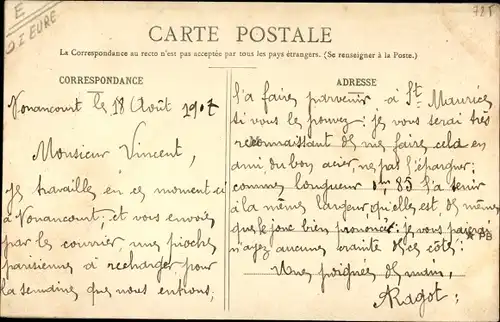 E
DZ EURE
72F
CARTE POSTALE
La Correspondance au recto n'est pas acceptée par tous les pays étrangers. (Se renseigner à la Poste.)
CORRESPONDANCE
Nonancourt le 18 Août 1907
Monsieur Vincent,
je travailles en ce moment ci
à Nonancourt; et vous envois
par le courrier, une pioche
parisienne à recharger pour
la semaine que nous entrons;
ADRESSE
l'a faire parvenir à St Maurice
si vous le pouvez: je vous serai très
reconnaissant de me faire cela en
ami, du bon acier, ne pas l'épargner;
comme longueur 0m,85 l'a tenir
à la même largeur qu'elles est, de même
que le jonc bien prononcé; je vous paierai
n'ayez aucunes crainte de ce côté;
Une poignée de main,
Ragot;